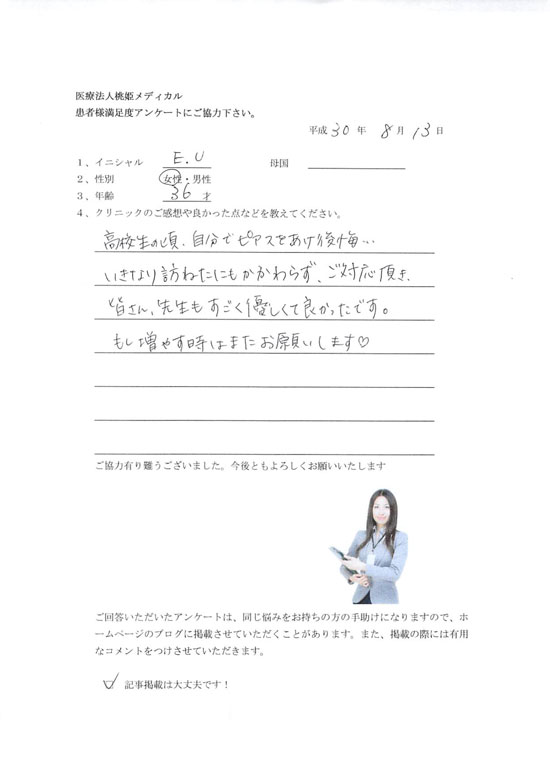 医療法人桃姫メディカル
患者様満足度アンケートにご協力下さい。
平成 30 年 8 月 13 日
1、イニシャル E.U 母国
2、性別 女性・男性
3、年齢 36 才
4、クリニックのご感想や良かった点などを教えてください。
高校生の頃、自分でピアスをあけ後悔…
いきなり訪ねたにもかかわらず、ご対応頂き、
皆さん、先生もすごく優しくて良かったです。
もし増やす時はまたお願いします♡
ご協力有り難うございました。今後ともよろしくお願いいたします
ご回答いただいたアンケートは、同じ悩みをお持ちの方の手助けになりますので、ホ
ームページのブログに掲載させていただくことがあります。また、掲載の際には有用
なコメントをつけさせていただきます。
✓ 記事掲載は大丈夫です！